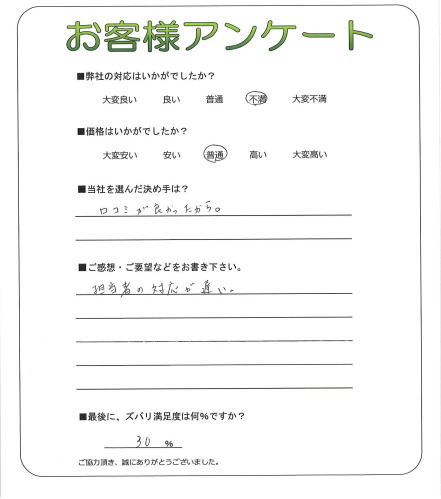 お客様アンケート
■弊社の対応はいかがでしたか？
大変良い 良い 普通 不満 大変不満
■価格はいかがでしたか？
大変安い 安い 普通 高い 大変高い
■当社を選んだ決め手は？
口コミが良かったから。
■ご感想・ご要望などをお書き下さい。
担当者の対応が遅い。
■最後に、ズバリ満足度は何%ですか？
30 %
ご協力頂き、誠にありがとうございました。